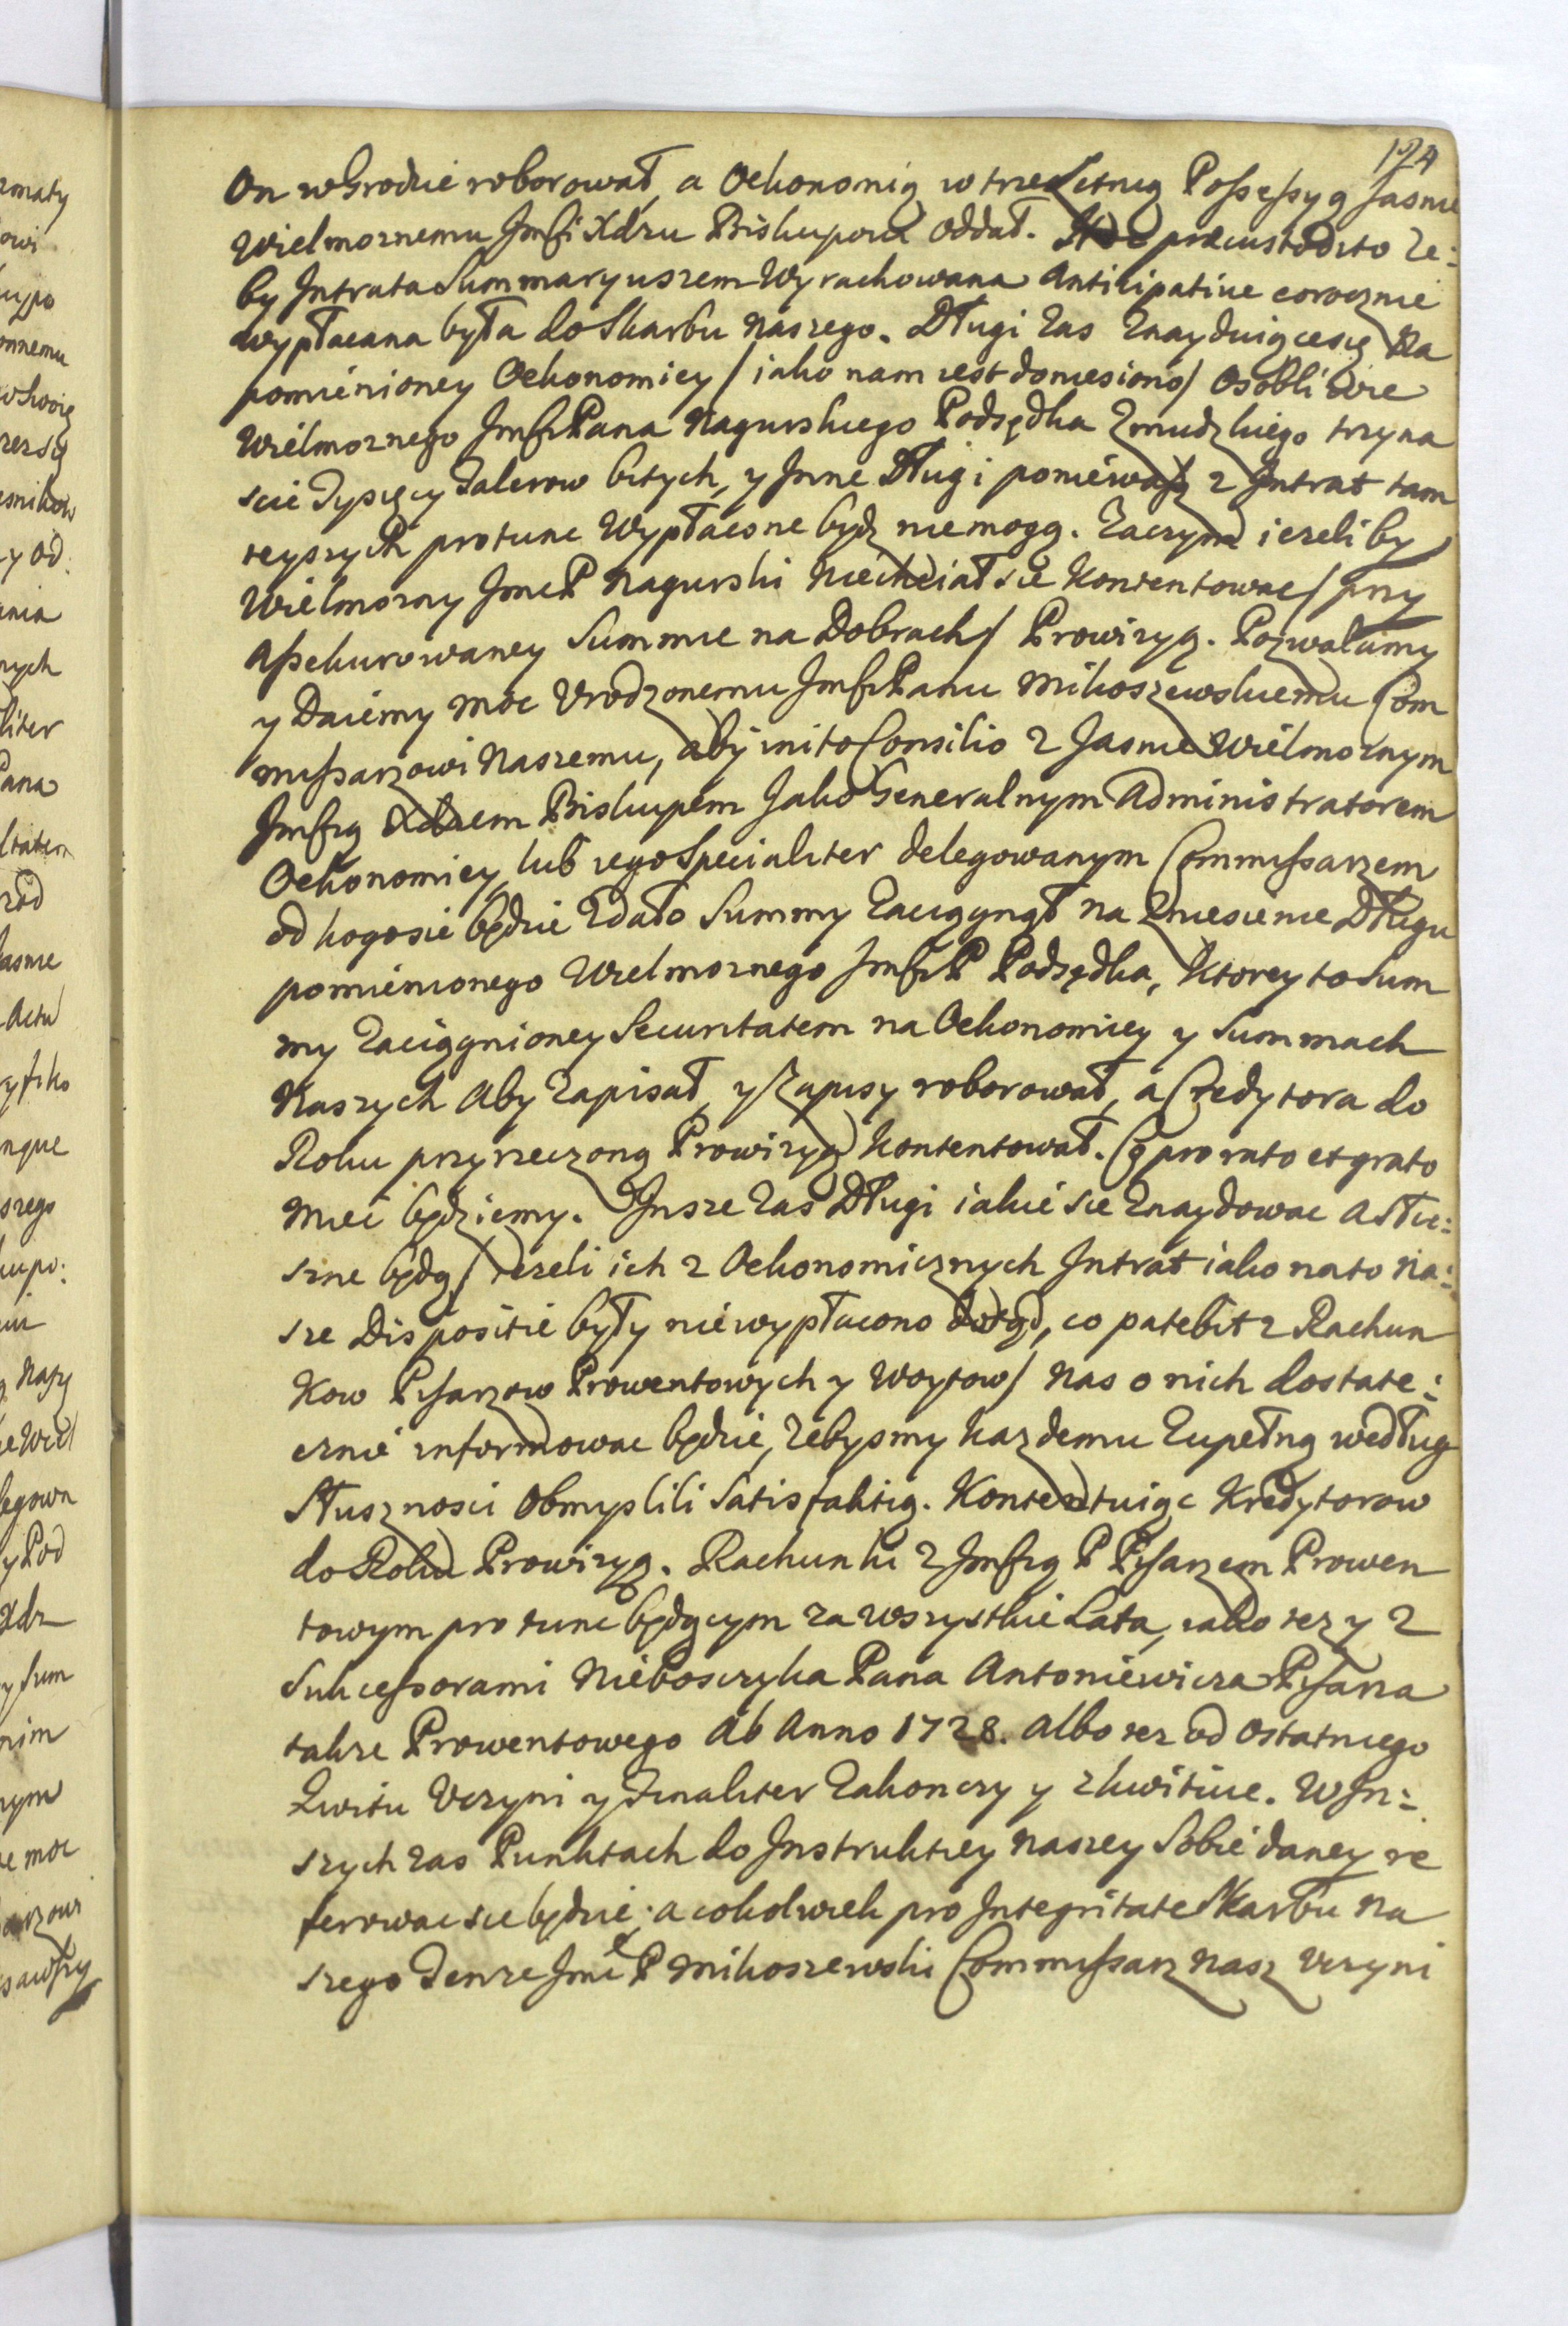 124
On w Grodzie roborował, a Oekonomią w trzechletnią Possessyą Jasnie
Wielmoznemu Jmści Xdzu Biskupowi oddał. Hoc praecustodito ze:
by Intrata Summaryuszem Wyrachowana Anticipative corocznie
wypłacana była do Skarbu Naszego. Długi zas znayduiącesię Na
pomienioney Oekonomiey / iako nam iest doniesiono / Osobliwie
Wielmoznego Jmści Pana Nagurskiego Podsędka Zmudzkiego trzyna
scie Tysięcy Talerow bitych, y Inne Długi poniewasz z Intrat tam
teyszych pro tunc Wypłacone bydz niemogą. Zaczym iezeliby
Wielmozny Jmć P Nagurski Niechciał sie Kontentowac / przy
Assekurowaney Summie na Dobrach / Prowizyą. Pozwalamy
y Daiemy Moc Urodzonemu Jmści Panu Mikoszewskiemu Com
missarzowi Naszemu, aby inito Consilio z Jasnie Wielmoznym
Jmścią Xdzem Biskupem Jako Generalnym Administratorem
Oekonomiey, lub iego Specialiter delegowanym Commissarzem
od kogosie będzie zdało Summy Zaciągnął na zniesienie Długu
pomienionego Wielmoznego Jmści P Podsędka, Ktorey to Sum
my Zaciągnioney Securitatem na Oekonomiey y Summach
Naszych Aby zapisał, y Zapisy roborował, a Credytora do
Roku przyrzeczoną Prowizyą Kontentował. Co pro rato et grato
Miec będziemy. Insze zas Długi iakie sie znaydowac a Słu:
szne będą / iezeli ich z Oekonomicznych Intrat iako na to Na:
sze Dispositie były niewypłacono dotąd, co patebit z Rachun
kow Pisarzow Prowentowych y Woytow / Nas o nich dostate:
cznie informowac będzie, zebysmy kazdemu Zupełną według
Słusznosci Obmyslili Satisfaktią. Kontentuiąc Kredytorow
do Roku Prowizyą. Rachunki z Jmścią P Pisarzem Prowen
towym pro tunc będącym za wszystkie Lata, iako tez y z
Sukcessorami Nieboszczyka Pana Antoniewicza Pisarza
takze Prowentowego Ab Anno 1728. Albo tez od ostatniego
Kwitu Uczyni y Finaliter Zakonczy y zkwituie. W In:
szych zas Punktach do Instruktiey Naszey Sobie daney re
ferowac sie będzie; a cokolwiek pro Integritate Skarbu Na
szego Tenze Jmć P Mikoszewski Commissarz Nasz Uczyni